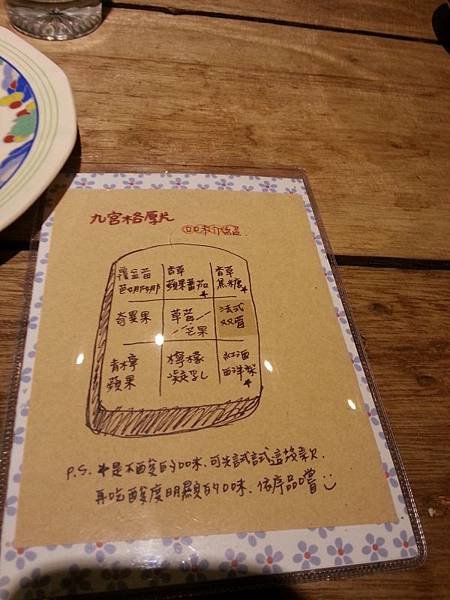 九宮格厚片
口味介紹區
覆盆莓
芭娜娜
香草
蘋果蕃茄*
香草
焦糖*
奇異果
草莓/
/芒果
法式
双莓
青檸
蘋果
檸檬
凝乳
紅酒
西洋梨*
P.S. *是不酸的口味.可先試試這幾款.
再吃酸度明顯的口味.依序品嚐